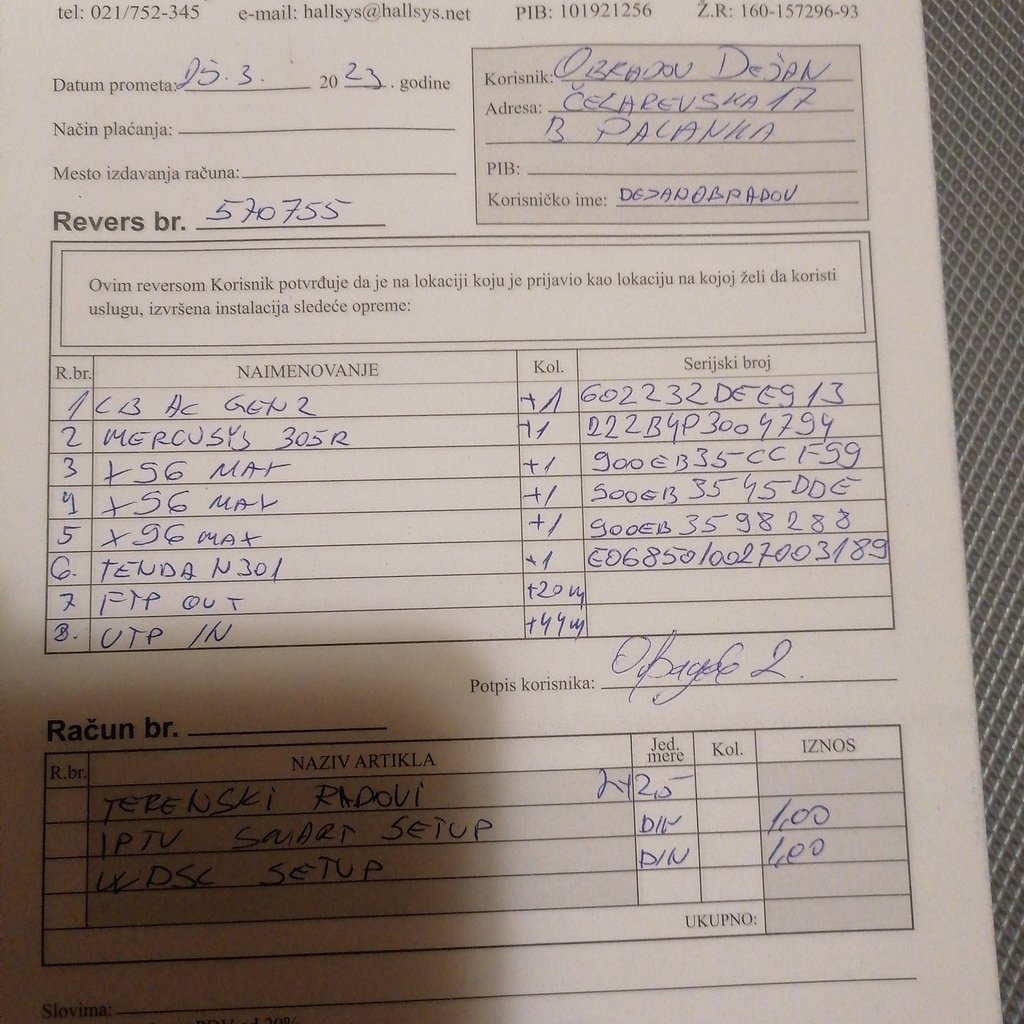 tel: 021/752-345 e-mail: hallsys@hallsys.net PIB: 101921256 Ž.R: 160-157296-93
Datum prometa: 25.3. 2023. godine
Korisnik: OBRADOV DEJAN
Adresa: ČELAREVSKA 17
B PALANKA
Način plaćanja:
Mesto izdavanja računa:
PIB:
Korisničko ime: DEJANOBRADOV
Revers br. 570755
Ovim reversom Korisnik potvrđuje da je na lokaciji koju je prijavio kao lokaciju na kojoj želi da koristi
uslugu, izvršena instalacija sledeće opreme:
R.br. NAIMENOVANJE Kol. Serijski broj
1 LB AC GEN2 +1 602232DEE913
2 MERCUSYS 305R +1 222B4P3004794
3 X96 MAX +1 900EB35CCF59
4 X96 MAX +1 900EB3545DDE
5 X96 MAX +1 900EB3598288
6. TENDA N301 +1 E0685010027003189
7 FTP OUT +20m
8. UTP IN +44m
Potpis korisnika:
Račun br.
R.br. NAZIV ARTIKLA Jed. mere Kol. IZNOS
TERENSKI RADOVI 2+2,5
IPTV SMART SETUP DIN 1,00
WDSL SETUP DIN 1,00
UKUPNO:
Slovima: